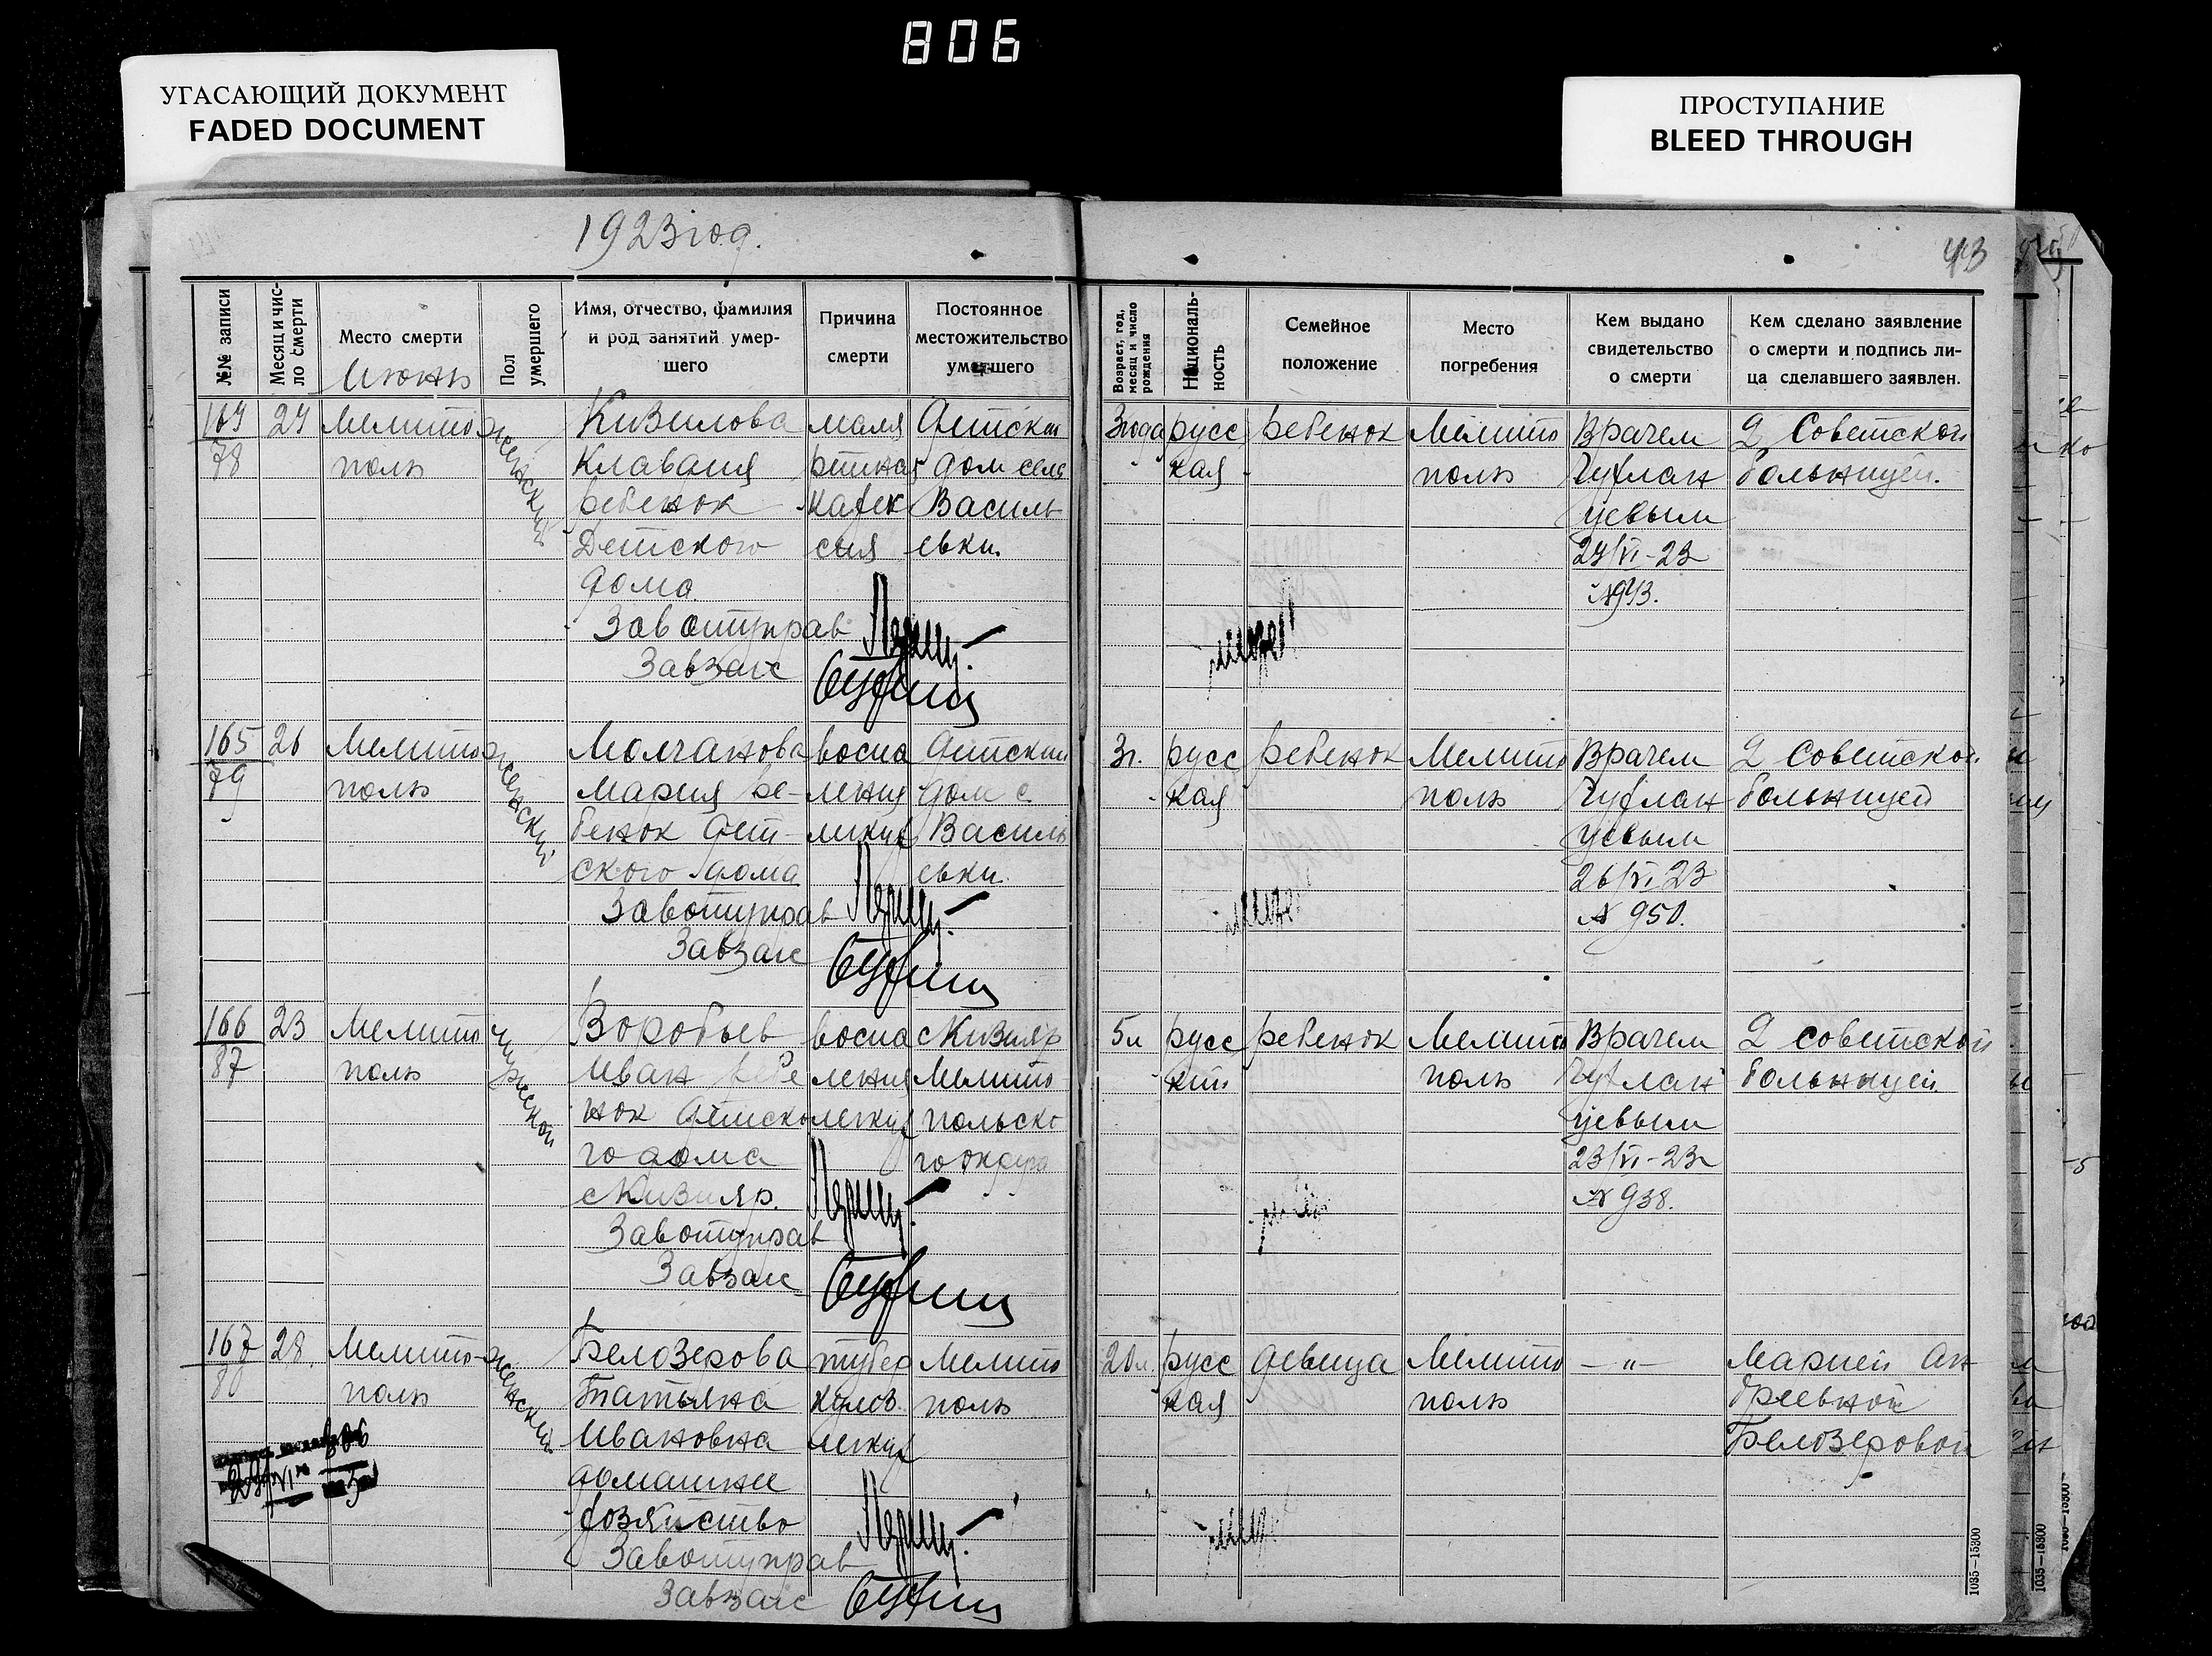 806
УГАСАЮЩИЙ ДОКУМЕНТ
FADED DOCUMENT
ПРОСТУПАНИЕ
BLEED THROUGH
1923 год.
43
№№ записи
Месяц и чис-
ло смерти
Место смерти
Июнь
Пол
умершего
Имя, отчество, фамилия
и род занятий умер-
шего
Причина
смерти
Постоянное
местожительство
умершего
Возраст, год,
месяц и число
рождения
Националь-
ность
Семейное
положение
Место
погребения
Кем выдано
свидетельство
о смерти
Кем сделано заявление
о смерти и подпись ли-
ца сделавшего заявлен.
164
78
24
Мелито
поль
женский
Кизилова
Клавдия
ребенок
Детского
дома
маля
рийная
кахек
сия
Детский
дом села
Василь
евки.
3 года
русс
кая
ребенок
Мелито
поль
Врачем
Гуфлан
цевым
24/VI-23
№ 943.
2 Советской
больницей.
Завотуправ
Завзагс
165
79
26
Мелито
поль
женский
Молчанова
Мария ре-
бенок Дет-
ского дома
воспа
ления
легких
Детский
дом с.
Василь
евки.
3 г.
русс
кая
ребенок
Мелито
поль
Врачем
Гуфлан
цевым
26/VI 23
№ 950.
2 Советской
больницей
Завотуправ
Завзагс
166
87
23
Мелито
поль
Воробьев
Иван ребе
нок Детско
го дома
с Кизияр.
воспа
ления
легких
с Кизияр
Мелито
польско
го округа
5 л
русс
кий
ребенок
Мелито
поль
Врачем
Гуфлан
цевым
23/VI-23
№ 938.
2 советской
больницей.
Завотуправ
Завзагс
167
80
28.
Мелито-
поль
женский
Белозерова
Татьяна
Ивановна
домашнее
хозяйство
тубер
кулоз.
легких
Мелито
поль
20 л.
русс
кая
девица
Мелито
поль
— " —
Марией Ан
дреевной
Белозеровой
Завотуправ
Завзагс
1035—15300
1035—15300